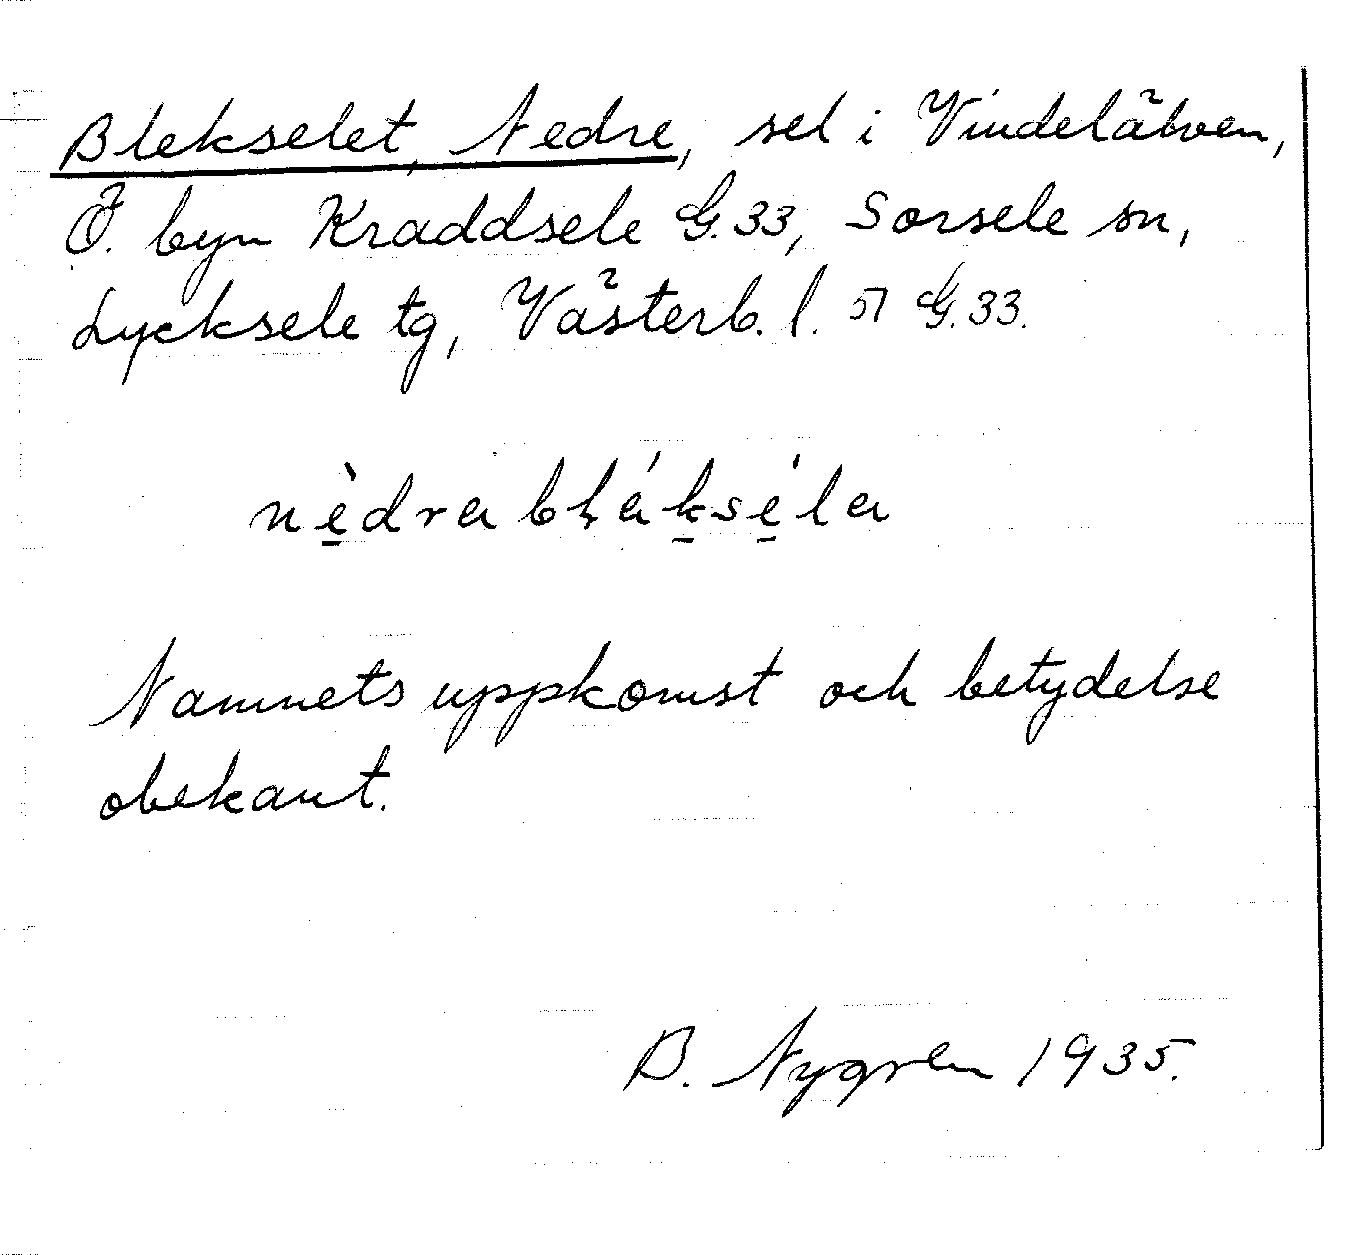 Blekselet, Nedre, sel i Vindelälven,
Ö. byn Kraddsele G. 33, Sorsele sn,
Lycksele tg, Västerb. l. 51 G. 33.
nèdrabḷékséla
Namnets uppkomst och betydelse
obekant.
B. Nygren 1935.